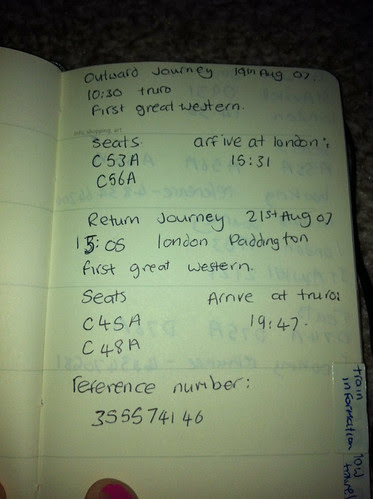 Outward Journey 19th Aug 07
10:30 truro
First great western.
info, shopping, art
Seats arrive at london:
C53A 15:31
C56A
Return Journey 21st Aug 07
15:05 london Paddington
first great western.
Seats Arrive at truro:
C45A 19:47.
C48A
reference number:
355574146
train
information